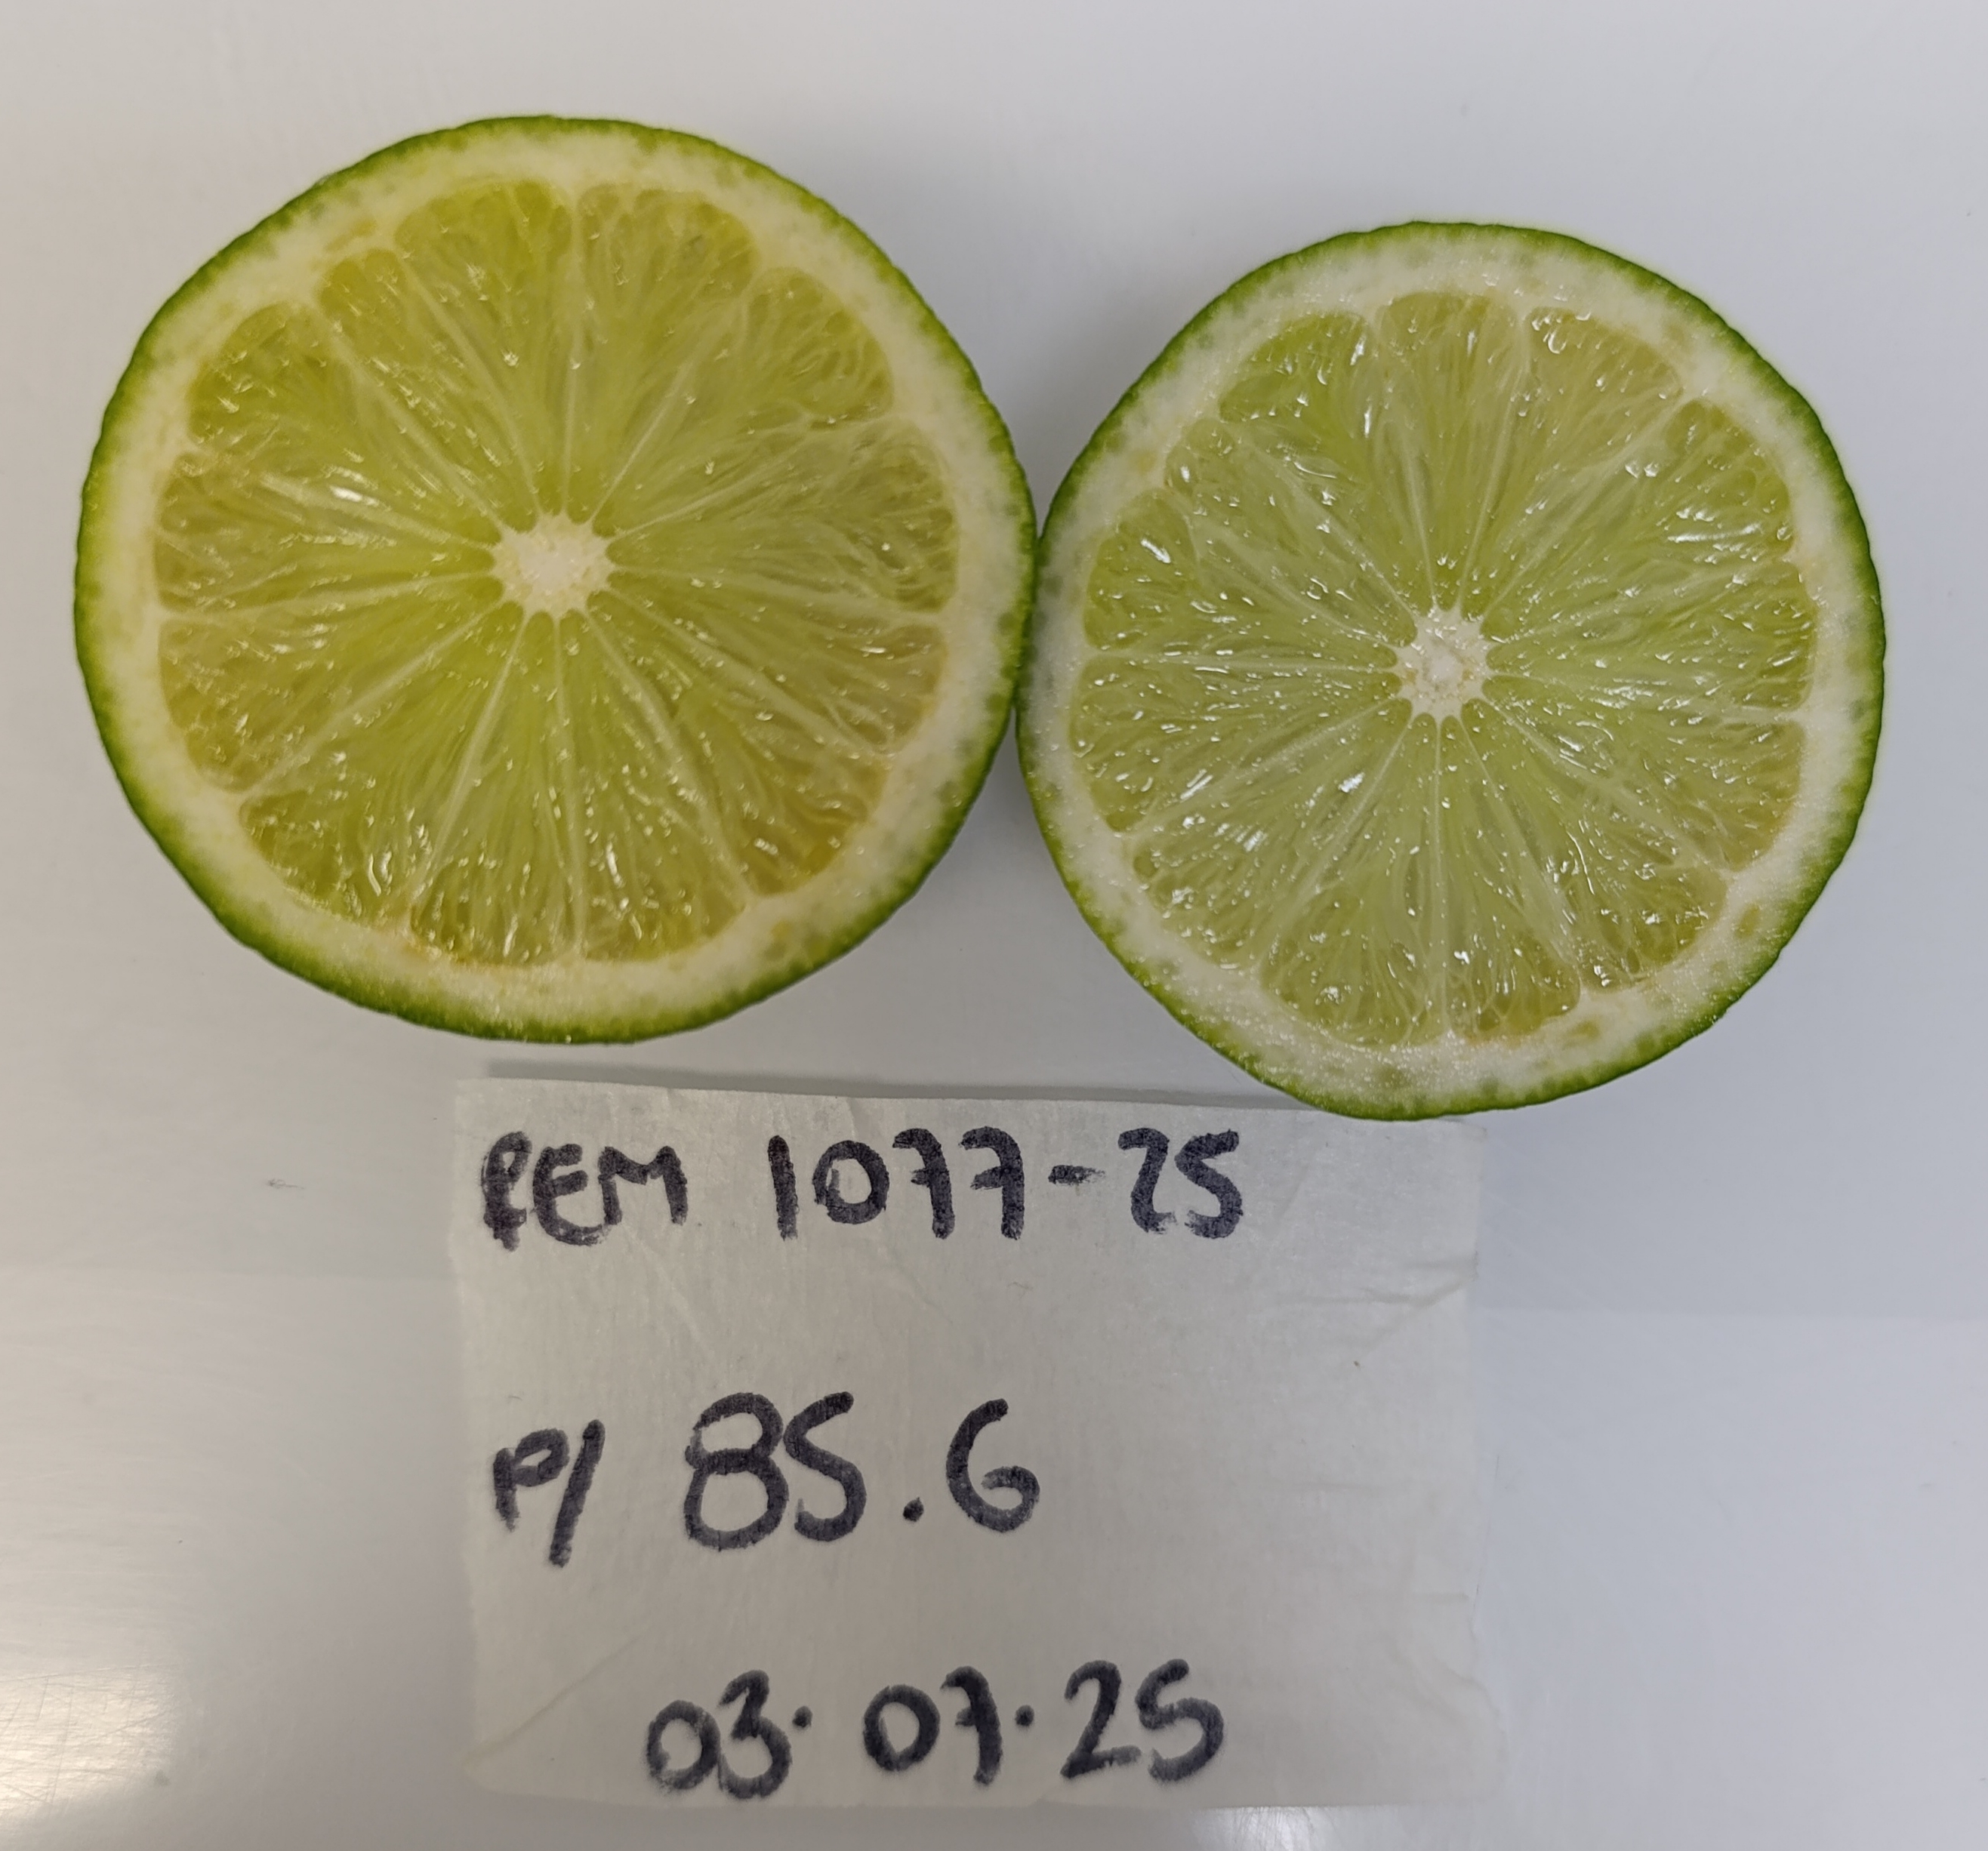 REM 1077-25
P/ 85.6
03.07.25